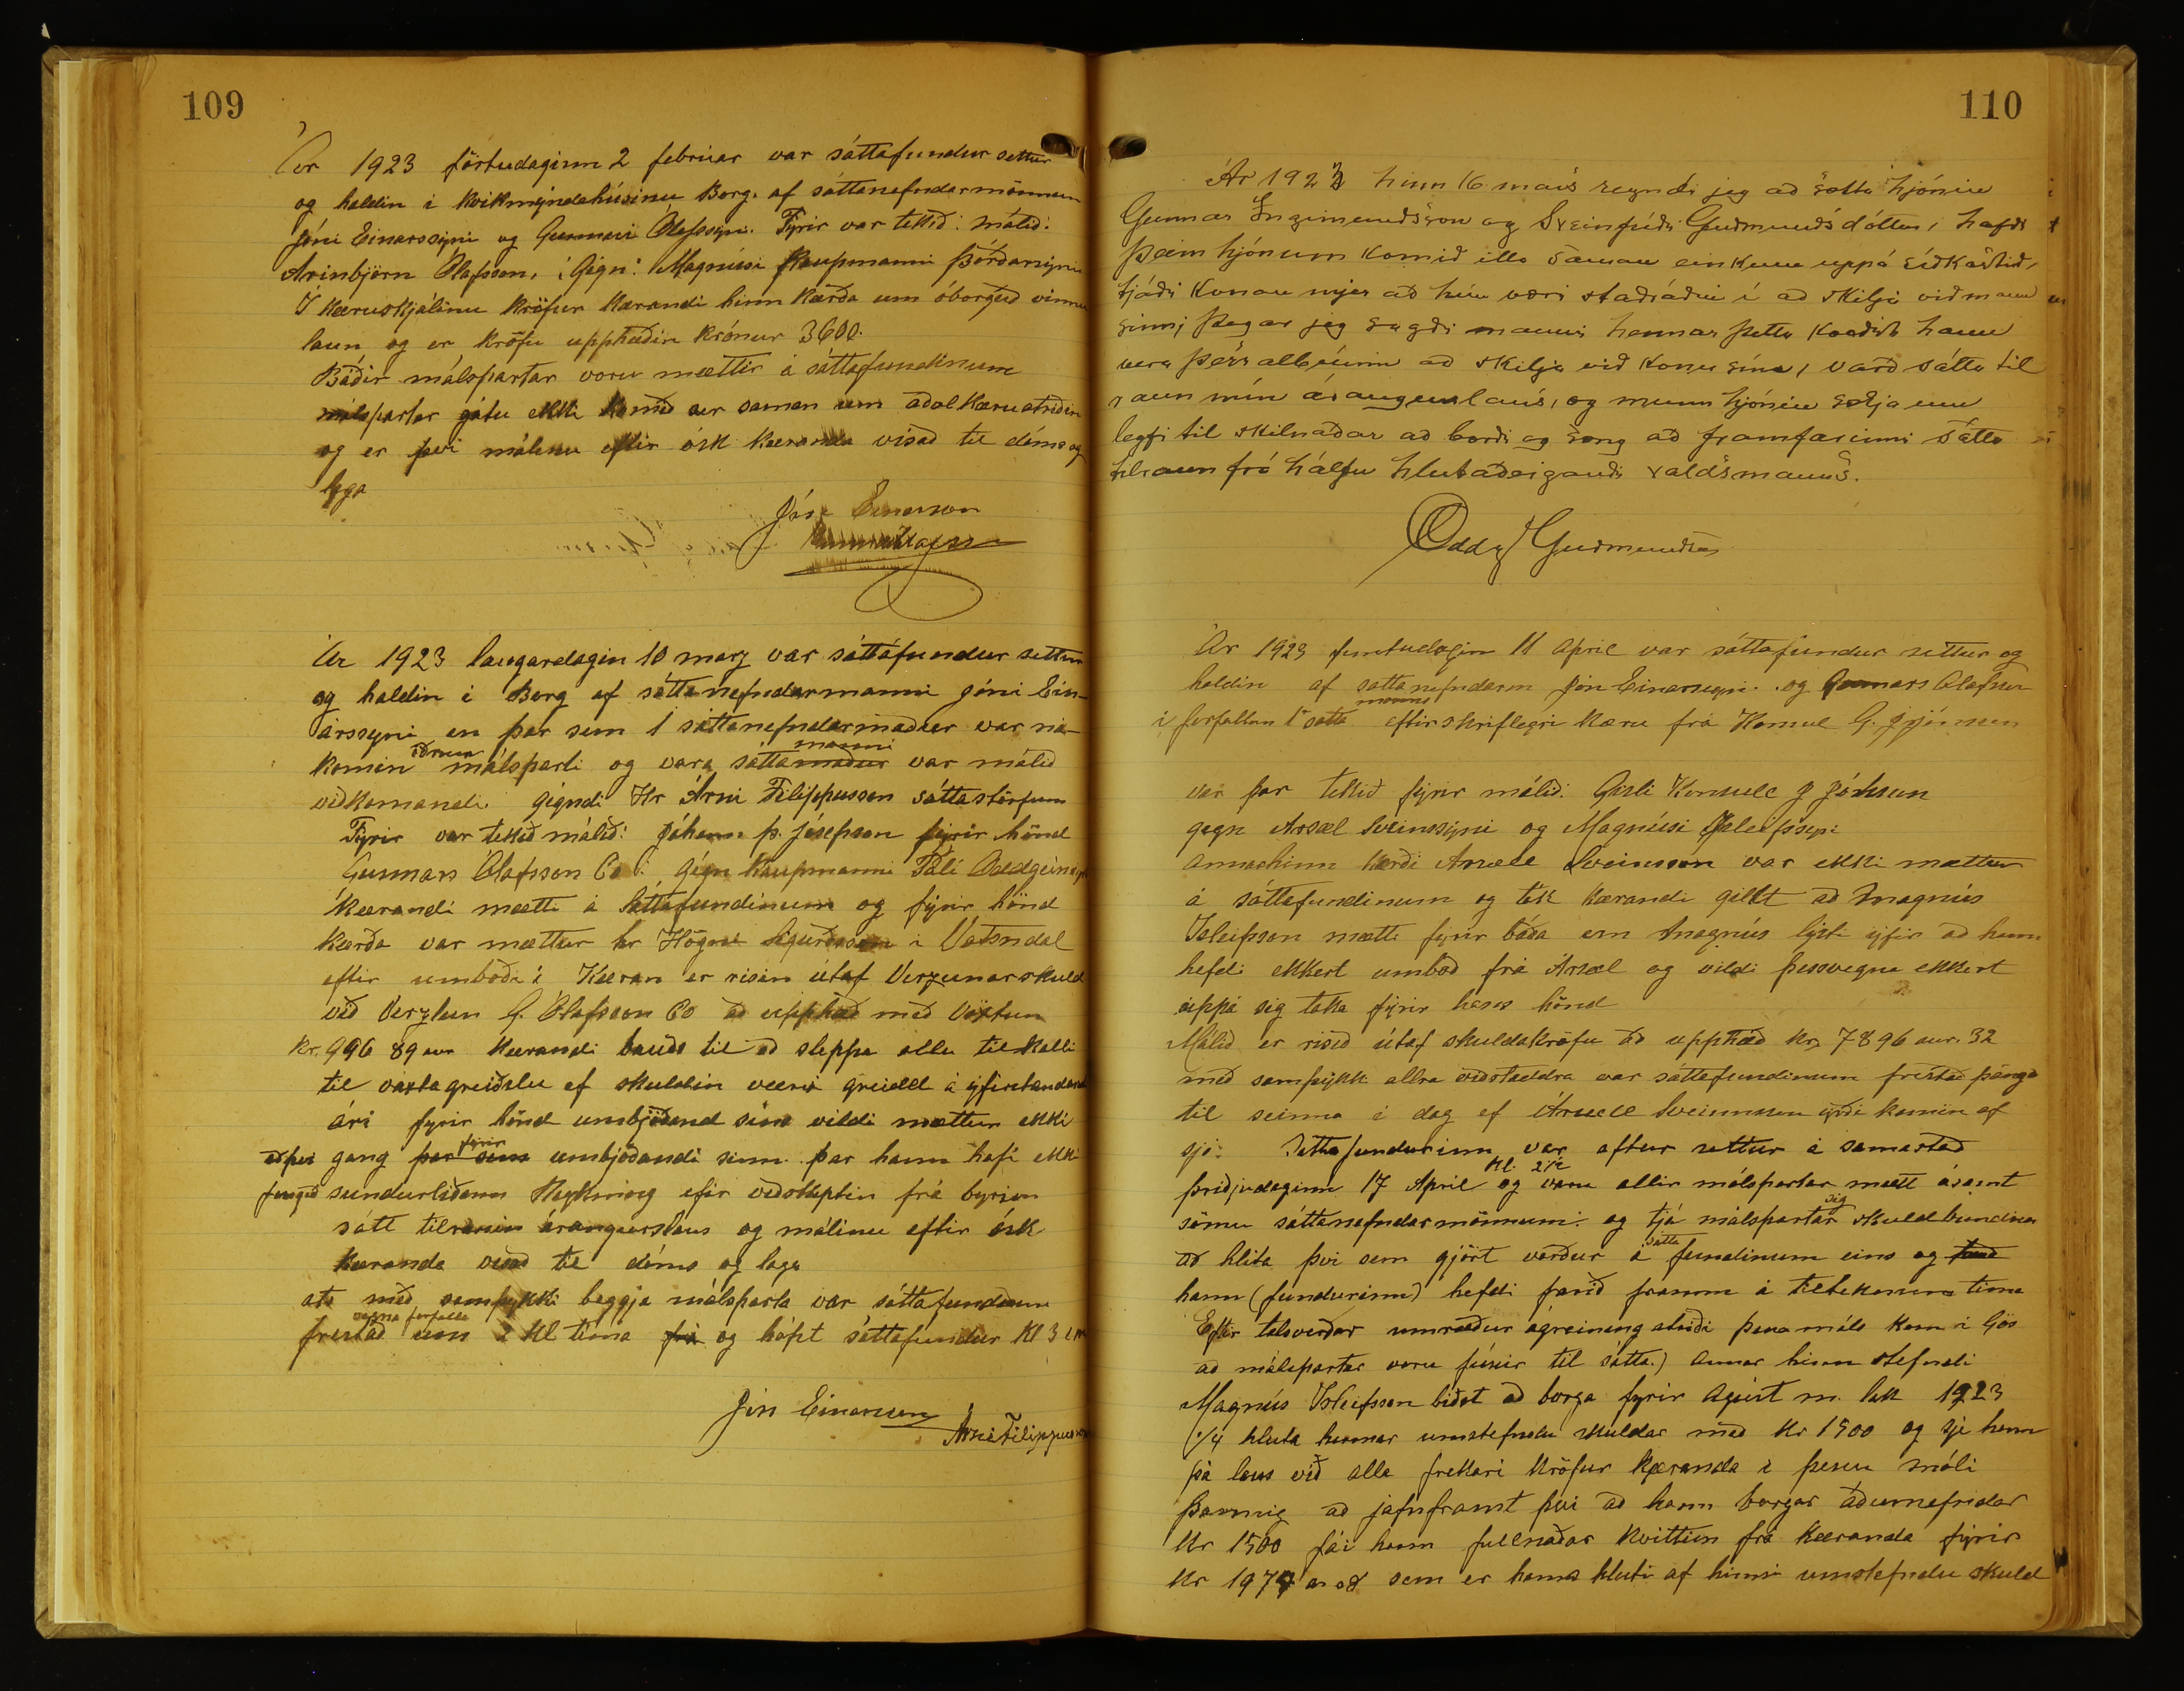 109
Ár 1923 föstudaginn 2 febrúar var sáttafundur settur
og haldin i Kvikmyndahúsinu Borg. af sáttanefndarmönnum
Jóni Einarssyni og Gunnari Ólafssyni. Fyrir var tekið: málið:
Arinbjörn Ólafsson, i Gegn: Magnúsi Kaupmanni Þórðarsyni
Í kæruskjalinu kröfur kærandi hinn kærða um óborguð vinnu
laun og er krafu upphæðin krónur 3600.
Báðir málspartar voru mættir á sáttafundinum
málspartar gátu ekki komið sér saman um aðal kæruatriðin
og er því málinu eftir ósk kæranda vísað til dóms og
laga
Jón Einarsson
Gunnar Ólafsson
Ár 1923 laugardagin 10 marz var sáttáfundur settur
og haldin i Borg af sáttanefndarmanni Jóni Ein-
arssyni en þar sem 1 sáttanefndarmaður var ná-
komin öðrum málsparti og vara sáttamaður manni var málið
viðkomandi gegndi Hr Árni Filippusson sáttastörfum
Fyrir var tekið málið: Jóhann Þ. Jósepson fyrir hönd
Gunnars Ólafsson Co : gegn Kaupmanni Páli Oddgeirssyni
Kærandi mætti á Sáttafundinum og fyrir hönd
kærða var mættur hr Högni Sigurðsson i Vatnsdal
eftir umboði: Kæran er risin útaf Verzunarskuld
við Verzlun G. Ólafsson Co að upphæð með Vöxtum
Kr. 996 89 aur Kærandi bauðs til að sleppa allu tilkalli
til vaxtagreiðslu ef skuldin væri greidd á yfirstandandi
ári fyrir hönd umbjóðand síns vildi mættur ekki
að því gang þar sem fyrir umbjóðandi sinn þar hann hafi ekki
fengið sundurliðann Reykning efir viðskiptin frá byrjun
sátt tilraunin árangurslaus og málinu eftir ósk
kæranda vísað til dóms og laga
ats með samþykki beggja málsparta var sáttafundinum
frestað vegna forfalla um 2 kl tima frá og hófst sáttafundur kl 3 em
Jón Einarsson
Árni Filippusson
110
Ár 1923 hinn 16 mars reyndi jeg að sætta hjónin
Gunnar Ingimundsson og Sveinfríði Guðmundsdóttur, hafði
þeim hjónum komið illa saman einkum uppá síðkastið,
tjáði konan mjer að hún væri staðráðin í að skilja við mann
sinn; þegar jeg sagði manni hennar þetta kvaðst hann
vera þess albúinn að skilja við konu sína, varð sátta til
raun mín árangurslaus, og munu hjónin sækja um
leyfi til skilnaðar að borði og sæng að framfarinni sátta
tilraun frá hálfu hlutaðeigandi valdsmanns.
Oddg Guðmundsson
Ár 1923 fimtudagin 11 Apríl var sáttafundur settur og
haldin af sattanefndarm Jón Einarssyni. og Gunnars Ólafsson
i forfallum 1 sátta manns eftir skriflegri kæru frá Konsul G. J Jónsson
var þar tekið fyrir málið: Gísli Konsull J Jónsson
gegn Arsæl Sveinssyni og Magnúsi Ísleifssyni
annarhinn kærði Arsæll Sveinsson var ekki mættur
á sáttafundinum og tók kærandi gillt að Magnús
Isleifsson mætti fyrir báða en Magnús lýsti yfir að hann
hefdi ekkert umboð frá Ársæl og vildi þessvegna ekkert
uppá sig taka fyrir hans hönd
Málið er risið útaf skuldakröfu að upphæð kr, 7896 aur. 32
með samþykk allra viðstaddra var sáttafundinum frestað þángað
til seinna i dag ef Ársæll Sveinsson yrði komin af
sjó. Sáttafundurinn var aftur settur á samastað
þriðjudaginn 17 Apríl kl. 2½ og voru allir málspartar mætt ásamt
sömu sáttanefndarmönnum. og tjá málspartar sig skuldbundna
að hlíta því sem gjört verður á sátta fundinum eins og
hann (fundurinn) hefdi farið framm á tilteknum tima
Eftir talsverðar umræður ágreining atriði þessa máls kom i ljós
að málspartar voru fúsir til sátta.) Annar hinn stefndi
Magnús Isleifsson biðst að borga fyrir Agúst m. lok 1923
1/4 hluta hennar umstefndu skuldar með Kr 1500 og sje hann
þá laus við alla frekari kröfur kæranda i þessu máli
Þannig að jafnframt því að hann borgar áðurnefndar
Kr 1500 fái hann fullnaðar kvittun frá kæranda fyrir
Kr 1974 a 08 sem er hans hluti af hinni umstefndu skuld